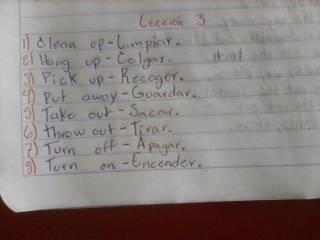 Lección 3
1) Clean up-Limpiar.
2) Hang up-Colgar.
3) Pick up-Recoger.
4) Put away-Guardar.
5) Take out-Sacar.
6) Throw out-Tirar.
7) Turn off-Apagar.
8) Turn on-Encender.